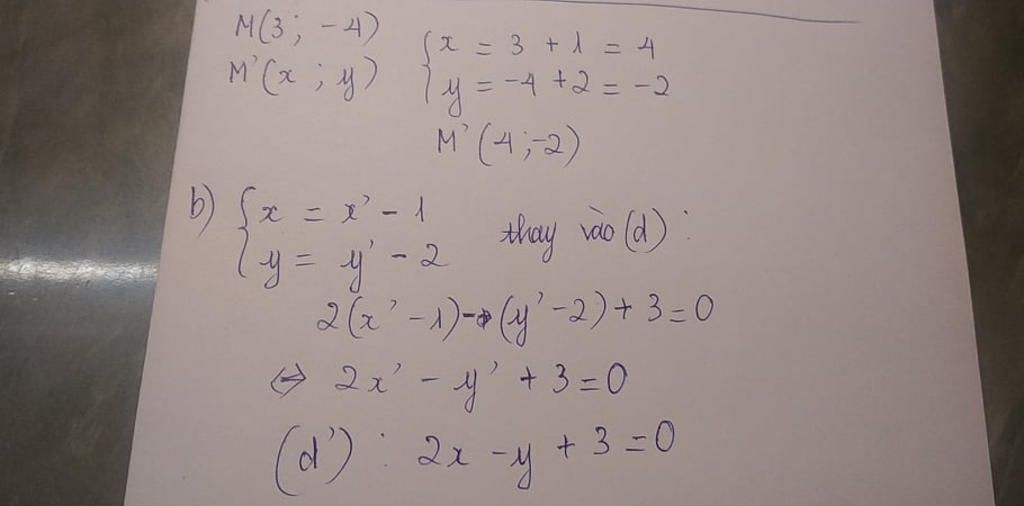 M(3; -4)
M'(x ; y)
{ x = 3 + 1 = 4
y = -4 + 2 = -2
M' (4;-2)
b) { x = x' - 1
y = y' - 2
thay vào (d) :
2(x' - 1) - (y' - 2) + 3 = 0
⇔ 2x' - y' + 3 = 0
(d') : 2x - y + 3 = 0